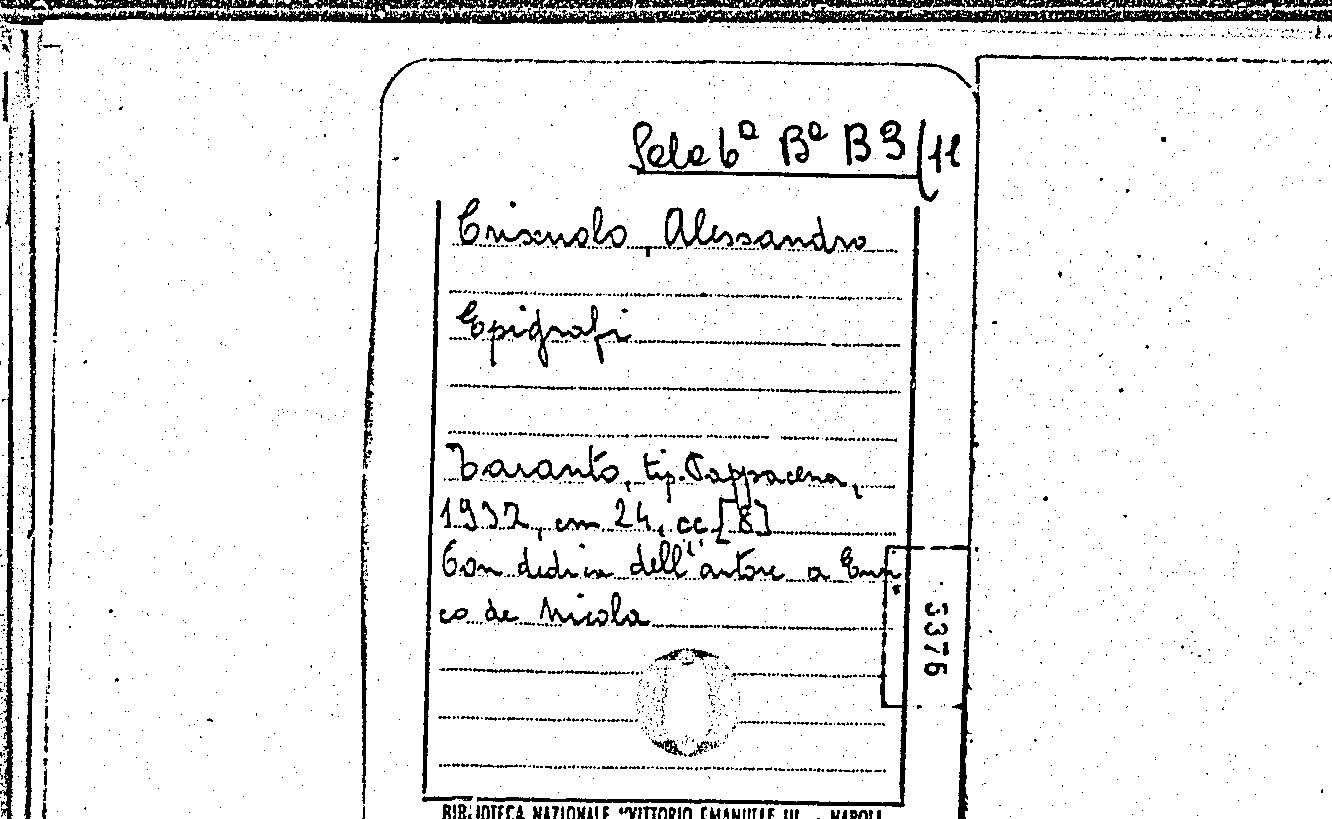 Sala 6ª Bª B3/11
Criscuolo, Alessandro
Epigrafi
Taranto, tip. Pappacena,
1937, cm 24, cc. [8]
Con dedica dell'autore a Enri
co de Nicola
5376
BIBLIOTECA NAZIONALE "VITTORIO EMANUELE III" - NAPOLI